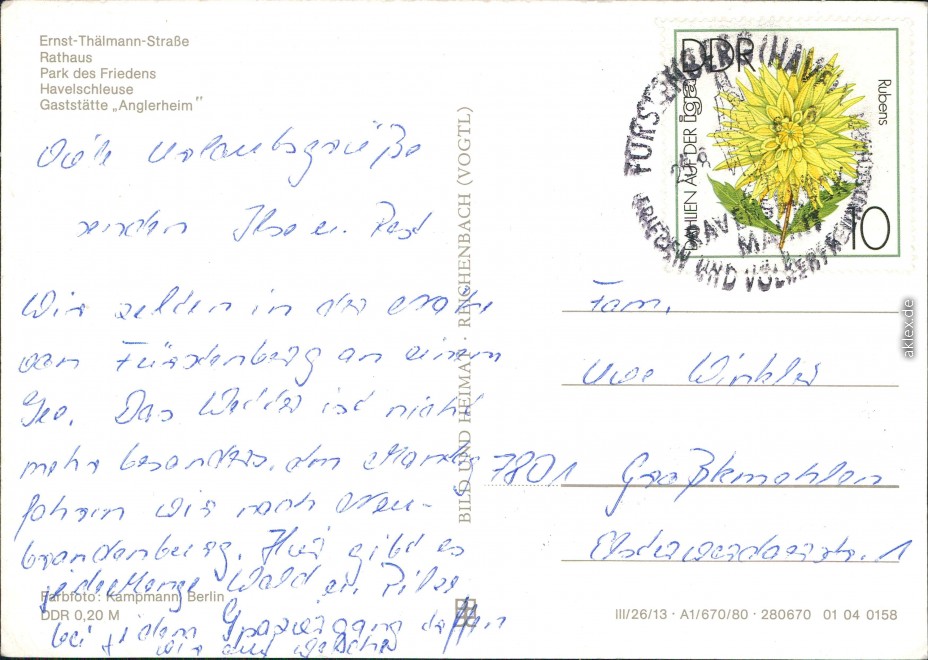 Ernst-Thälmann-Straße
Rathaus
Park des Friedens
Havelschleuse
Gaststätte „Anglerheim"
Viele Urlaubsgrüße
senden Ilse u.
Wir zelten in der Nähe
von Fürstenberg an einem
See. Das Wetter ist nicht
mehr besonders. Am Montag
fahren wir nach Neu-
brandenburg. Hier gibt es
jede Menge Wald u. Pilze
bei jedem Spaziergang dürfen
wir auf welche
Farbfoto: Kampmann, Berlin
DDR 0,20 M
BILD UND HEIMAT · REICHENBACH (VOGTL)
DDR
DAHLIEN AUF DER iga
Rubens
10
FÜRSTENBERG (HAVEL)
FRIEDEN UND VÖLKERFREUNDSCHAFT
Fam.
Uwe Winkler
7801 Großkmehlen
Elsterwerdaerstr. 1
III/26/13 · A1/670/80 · 280670 01 04 0158
aklex.de